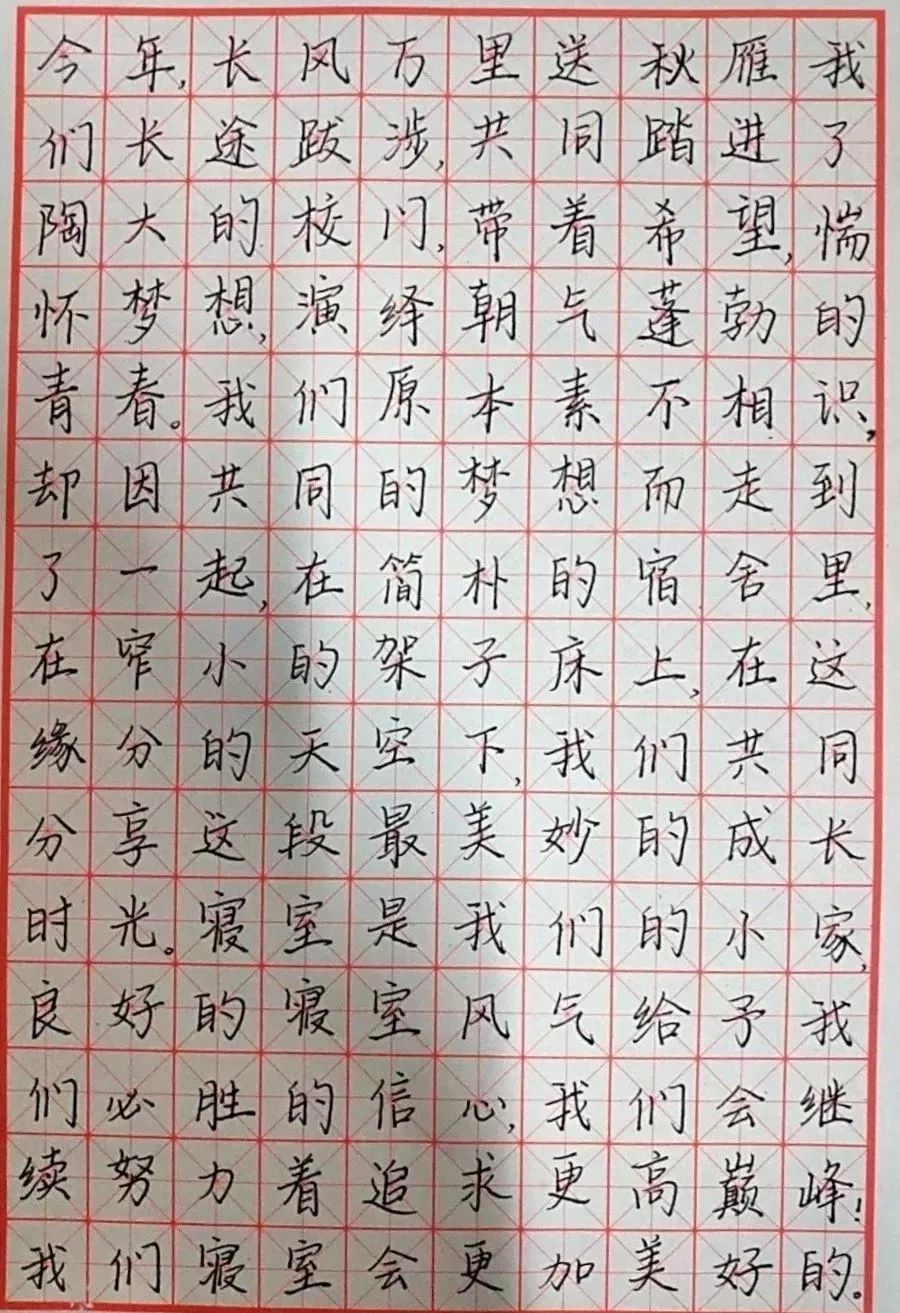 今年,长风万里送秋雁我
们长途跋涉,共同踏进了
陶大的校门,带着希望,惴
怀梦想,演绎朝气蓬勃的
青春。我们原本素不相识,
却因共同的梦想而走到
了一起,在简朴的宿舍里,
在窄小的架子床上,在这
缘分的天空下,我们共同
分享这段最美妙的成长
时光。寝室是我们的小家,
良好的寝室风气给予我
们必胜的信心,我们会继
续努力着追求更高巅峰!
我们寝室会更加美好的。